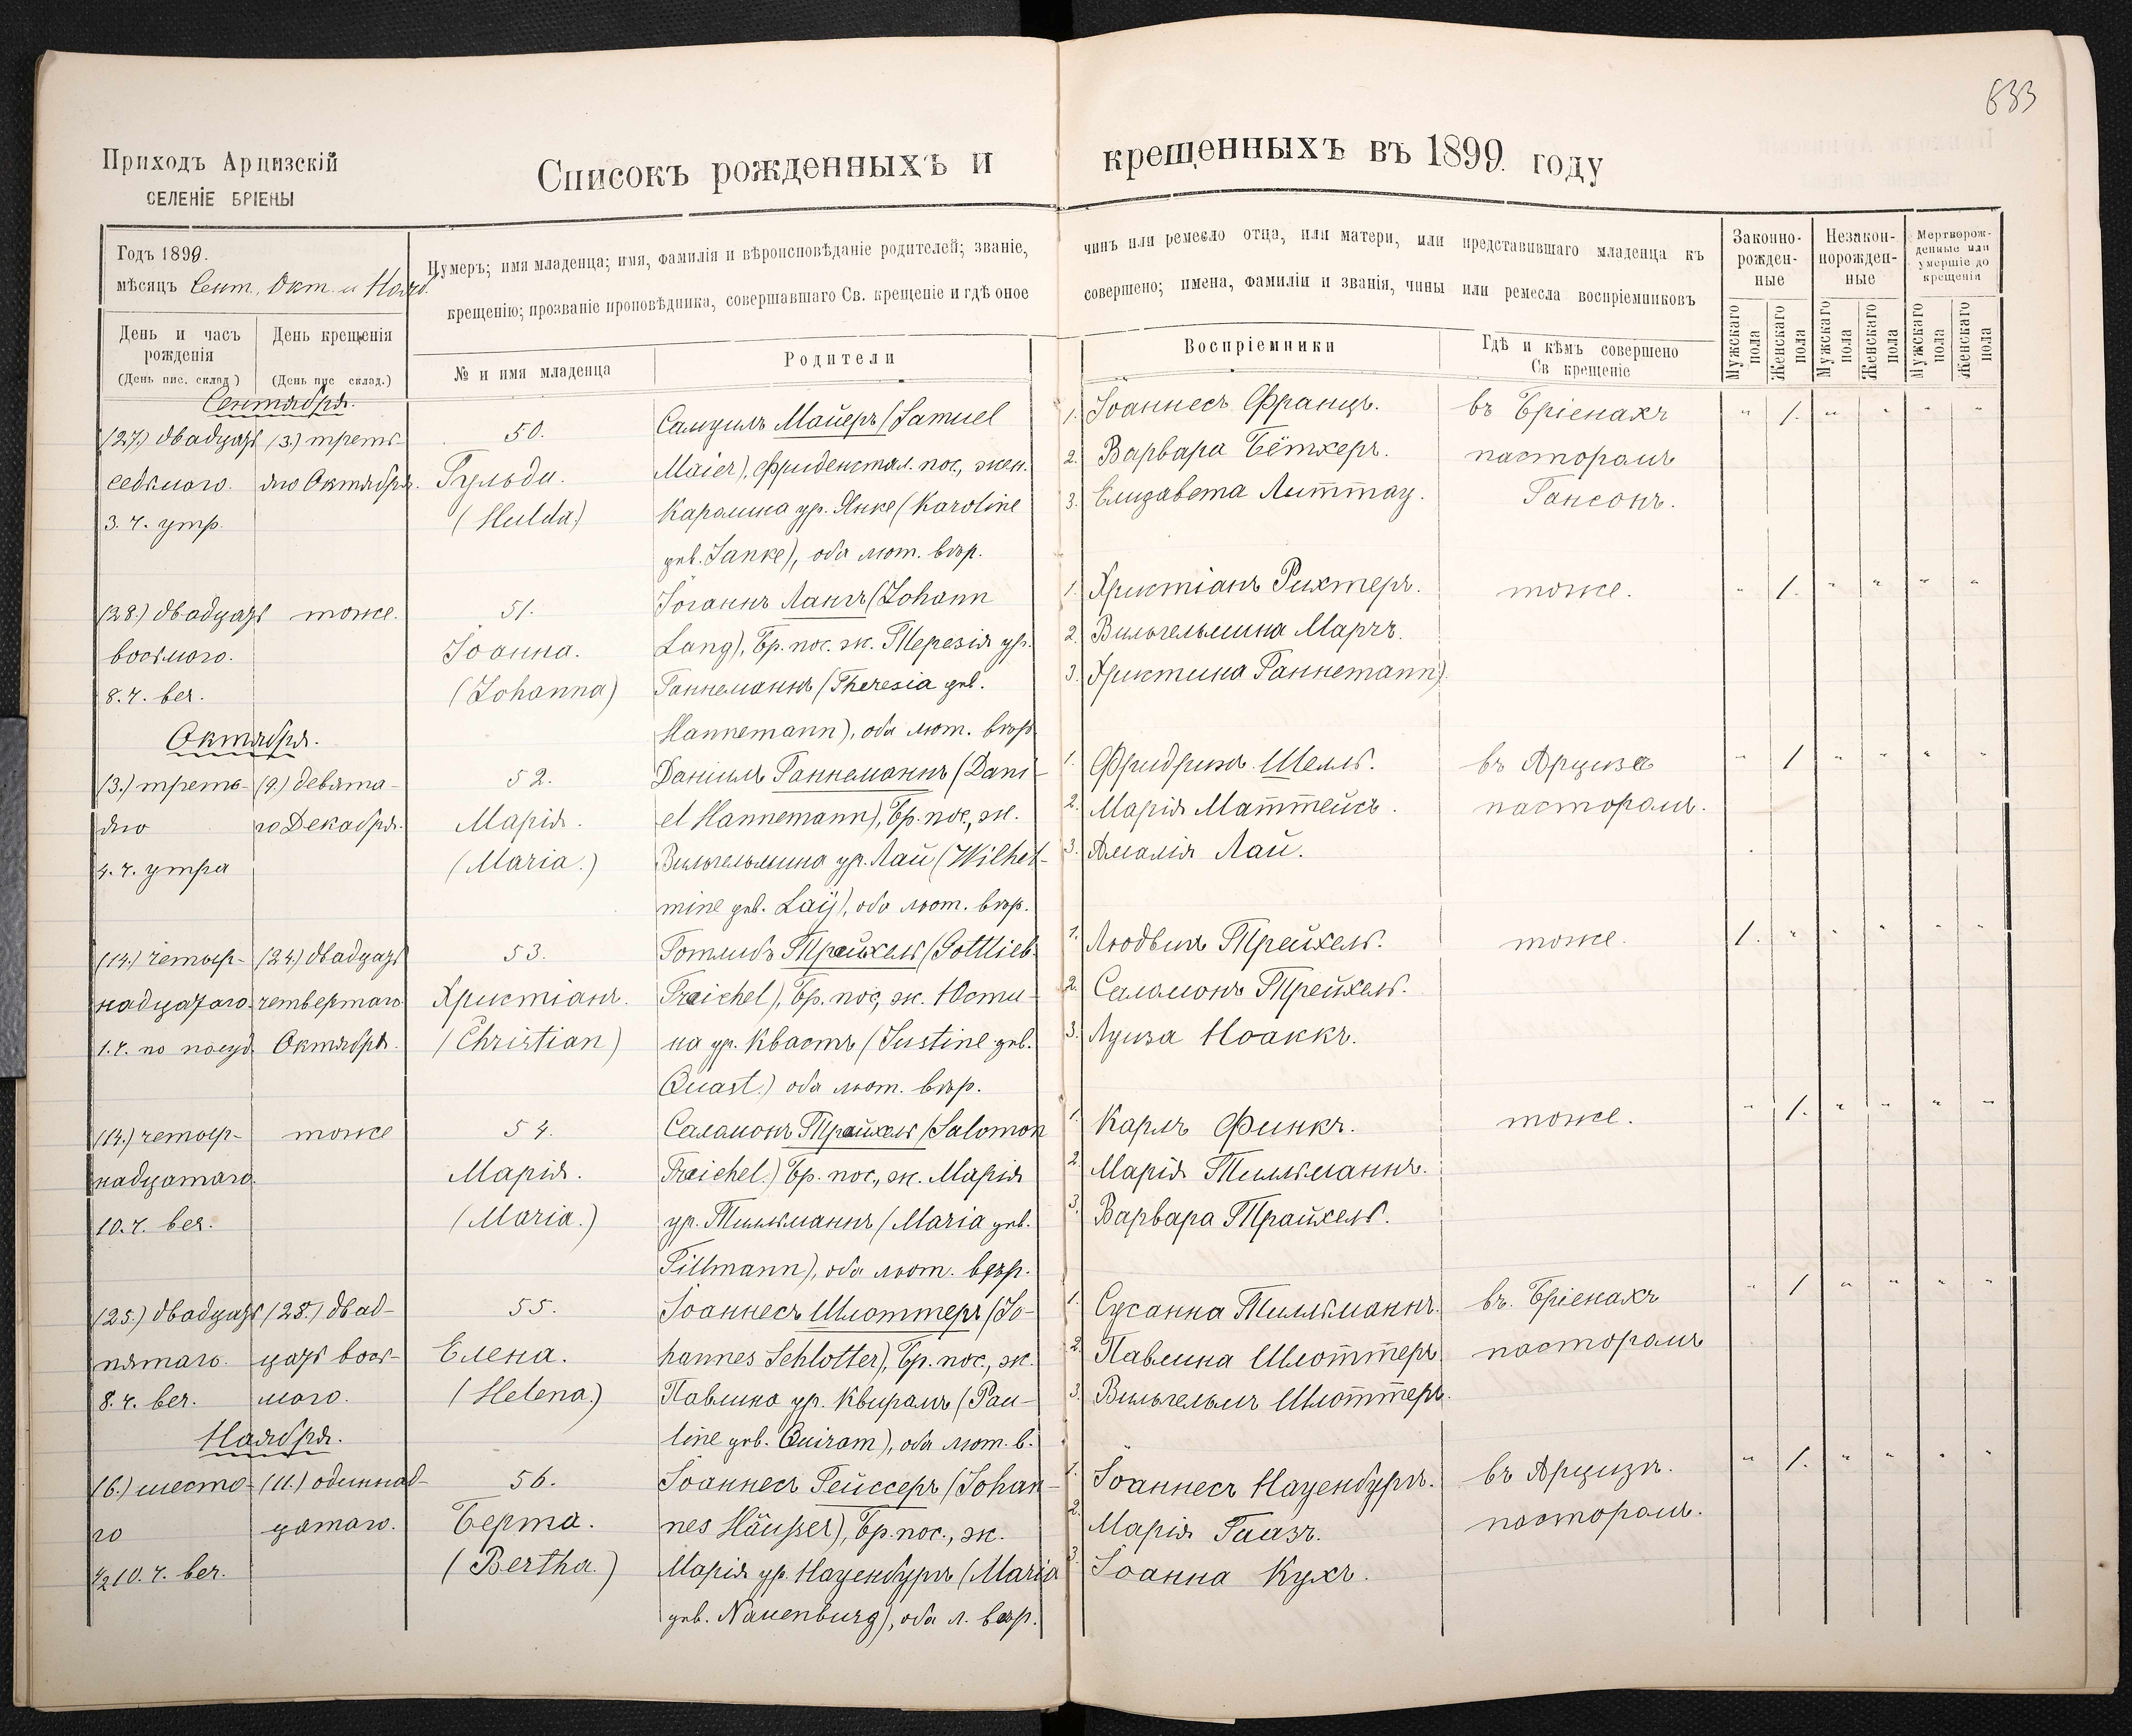 633
Приходъ Арцизскій
СЕЛЕНІЕ БРІЕНЫ
Списокъ рожденныхъ и крещенныхъ въ 1899. году
Годъ 1899.
мѣсяцъ Сент., Окт. и Нояб.
Нумеръ; имя младенца; имя, фамилія и вѣроисповѣданіе родителей; званіе, чинъ или ремесло отца, или матери, или представившаго младенца къ
крещенію; прозваніе проповѣдника, совершавшаго Св. крещеніе и гдѣ оное совершено; имена, фамиліи и званія, чины или ремесла воспріемниковъ
Законно-
рожден-
ные
Незакон-
норожден-
ные
Мертворож-
денные или
умершіе до
крещенія
День и часъ
рожденія
(День пис. склад.)
День крещенія
(День пис склад.)
№ и имя младенца
Родители
Воспріемники
Гдѣ и кѣмъ совершено
Св крещеніе
Мужскаго пола
Женскаго пола
Мужскаго пола
Женскаго пола
Мужскаго пола
Женскаго пола
Сентября.
(27.) двадцать
седьмого.
3. ч. утр.
(3.) треть-
яго Октября.
50.
Гульда.
(Hulda)
Самуилъ Майеръ (Samuel
Maier), Фриденстал. пос., жен.
Каролина ур. Янке (Karoline
geb. Janke), оба лют. вѣр.
1. Іоаннесъ Францъ.
2. Варвара Бётхеръ.
3. Елизавета Литтау.
въ Бріенахъ
пасторомъ
Гансонъ.
" 1. " " " "
(28.) двадцать
восьмого.
8. ч. веч.
тоже.
51.
Іоанна.
(Johanna)
Іоганнъ Лангъ (Johann
Lang), Бр. пос. ж. Терезія ур.
Ганнеманнъ (Theresia geb.
Hannemann), оба лют. вѣр.
1. Христіанъ Рихтеръ.
2. Вильгельмина Марчъ.
3. Христина Ганнemann).
тоже.
" 1. " " " "
Октября.
(3.) треть-
яго
4. ч. утра
(9.) девята-
го Декабря.
52.
Марія.
(Maria.)
Даніилъ Ганнеманнъ (Dani-
el Hannemann), Бр. пос., ж.
Вильгельмина ур. Лай (Wilhel-
mine geb. Laÿ), оба лют. вѣр.
1. Фридрихъ Шелль.
2. Марія Маттейсъ.
3. Амалія Лай.
въ Арцизѣ
пасторомъ.
" 1 " " " "
(14.) четыр-
надцатаго
1. ч. по полуд.
(24.) двадцать
четвертаго
Октября.
53.
Христіанъ.
(Christian)
Готлибъ Трайхель (Gottlieb
Traichel), Бр. пос., ж. Юсти-
на ур. Квастъ (Justine geb.
Quast.) оба лют. вѣр.
1. Людвигъ Трейхель.
2. Саломонъ Трейхель.
3. Луиза Ноаккъ.
тоже.
1. " " " " "
(14.) четыр-
надцатаго.
10. ч. веч.
тоже
54.
Марія.
(Maria.)
Саломонъ Трайхель (Salomon
Traichel.) Бр. пос., ж. Марія
ур. Тилльманнъ (Maria geb.
Tillmann), оба лют. вѣр.
1. Карлъ Финкъ.
2. Марія Тилльманнъ.
3. Варвара Трайхель.
тоже.
" 1. " " " "
(25.) двадцать
пятаго.
8. ч. веч.
(28.) двад-
цать вось-
мого.
55.
Елена.
(Helena.)
Іоаннесъ Шлоттеръ (Jo-
hannes Schlotter), Бр. пос., ж.
Павлина ур. Квирамъ (Pau-
line geb. Quiram), оба лют. в.
1. Сусанна Тилльманнъ.
2. Павлина Шлоттеръ
3. Вильгельмъ Шлоттеръ.
въ Бріенахъ
пасторомъ
" 1 " " " "
Ноября.
(6.) шесто-
го
½10. ч. веч.
(11.) одиннад-
цатаго.
56.
Берта.
(Bertha.)
Іоаннесъ Гейссеръ (Johan-
nes Häußer), Бр. пос., ж.
Марія ур. Науенбургъ (Maria
geb. Nauenburg), оба л. вѣр.
1. Іоаннесъ Науенбургъ.
2. Марія Гаазъ.
3. Іоанна Кухъ.
въ Арцизѣ.
пасторомъ.
" 1. " " " "